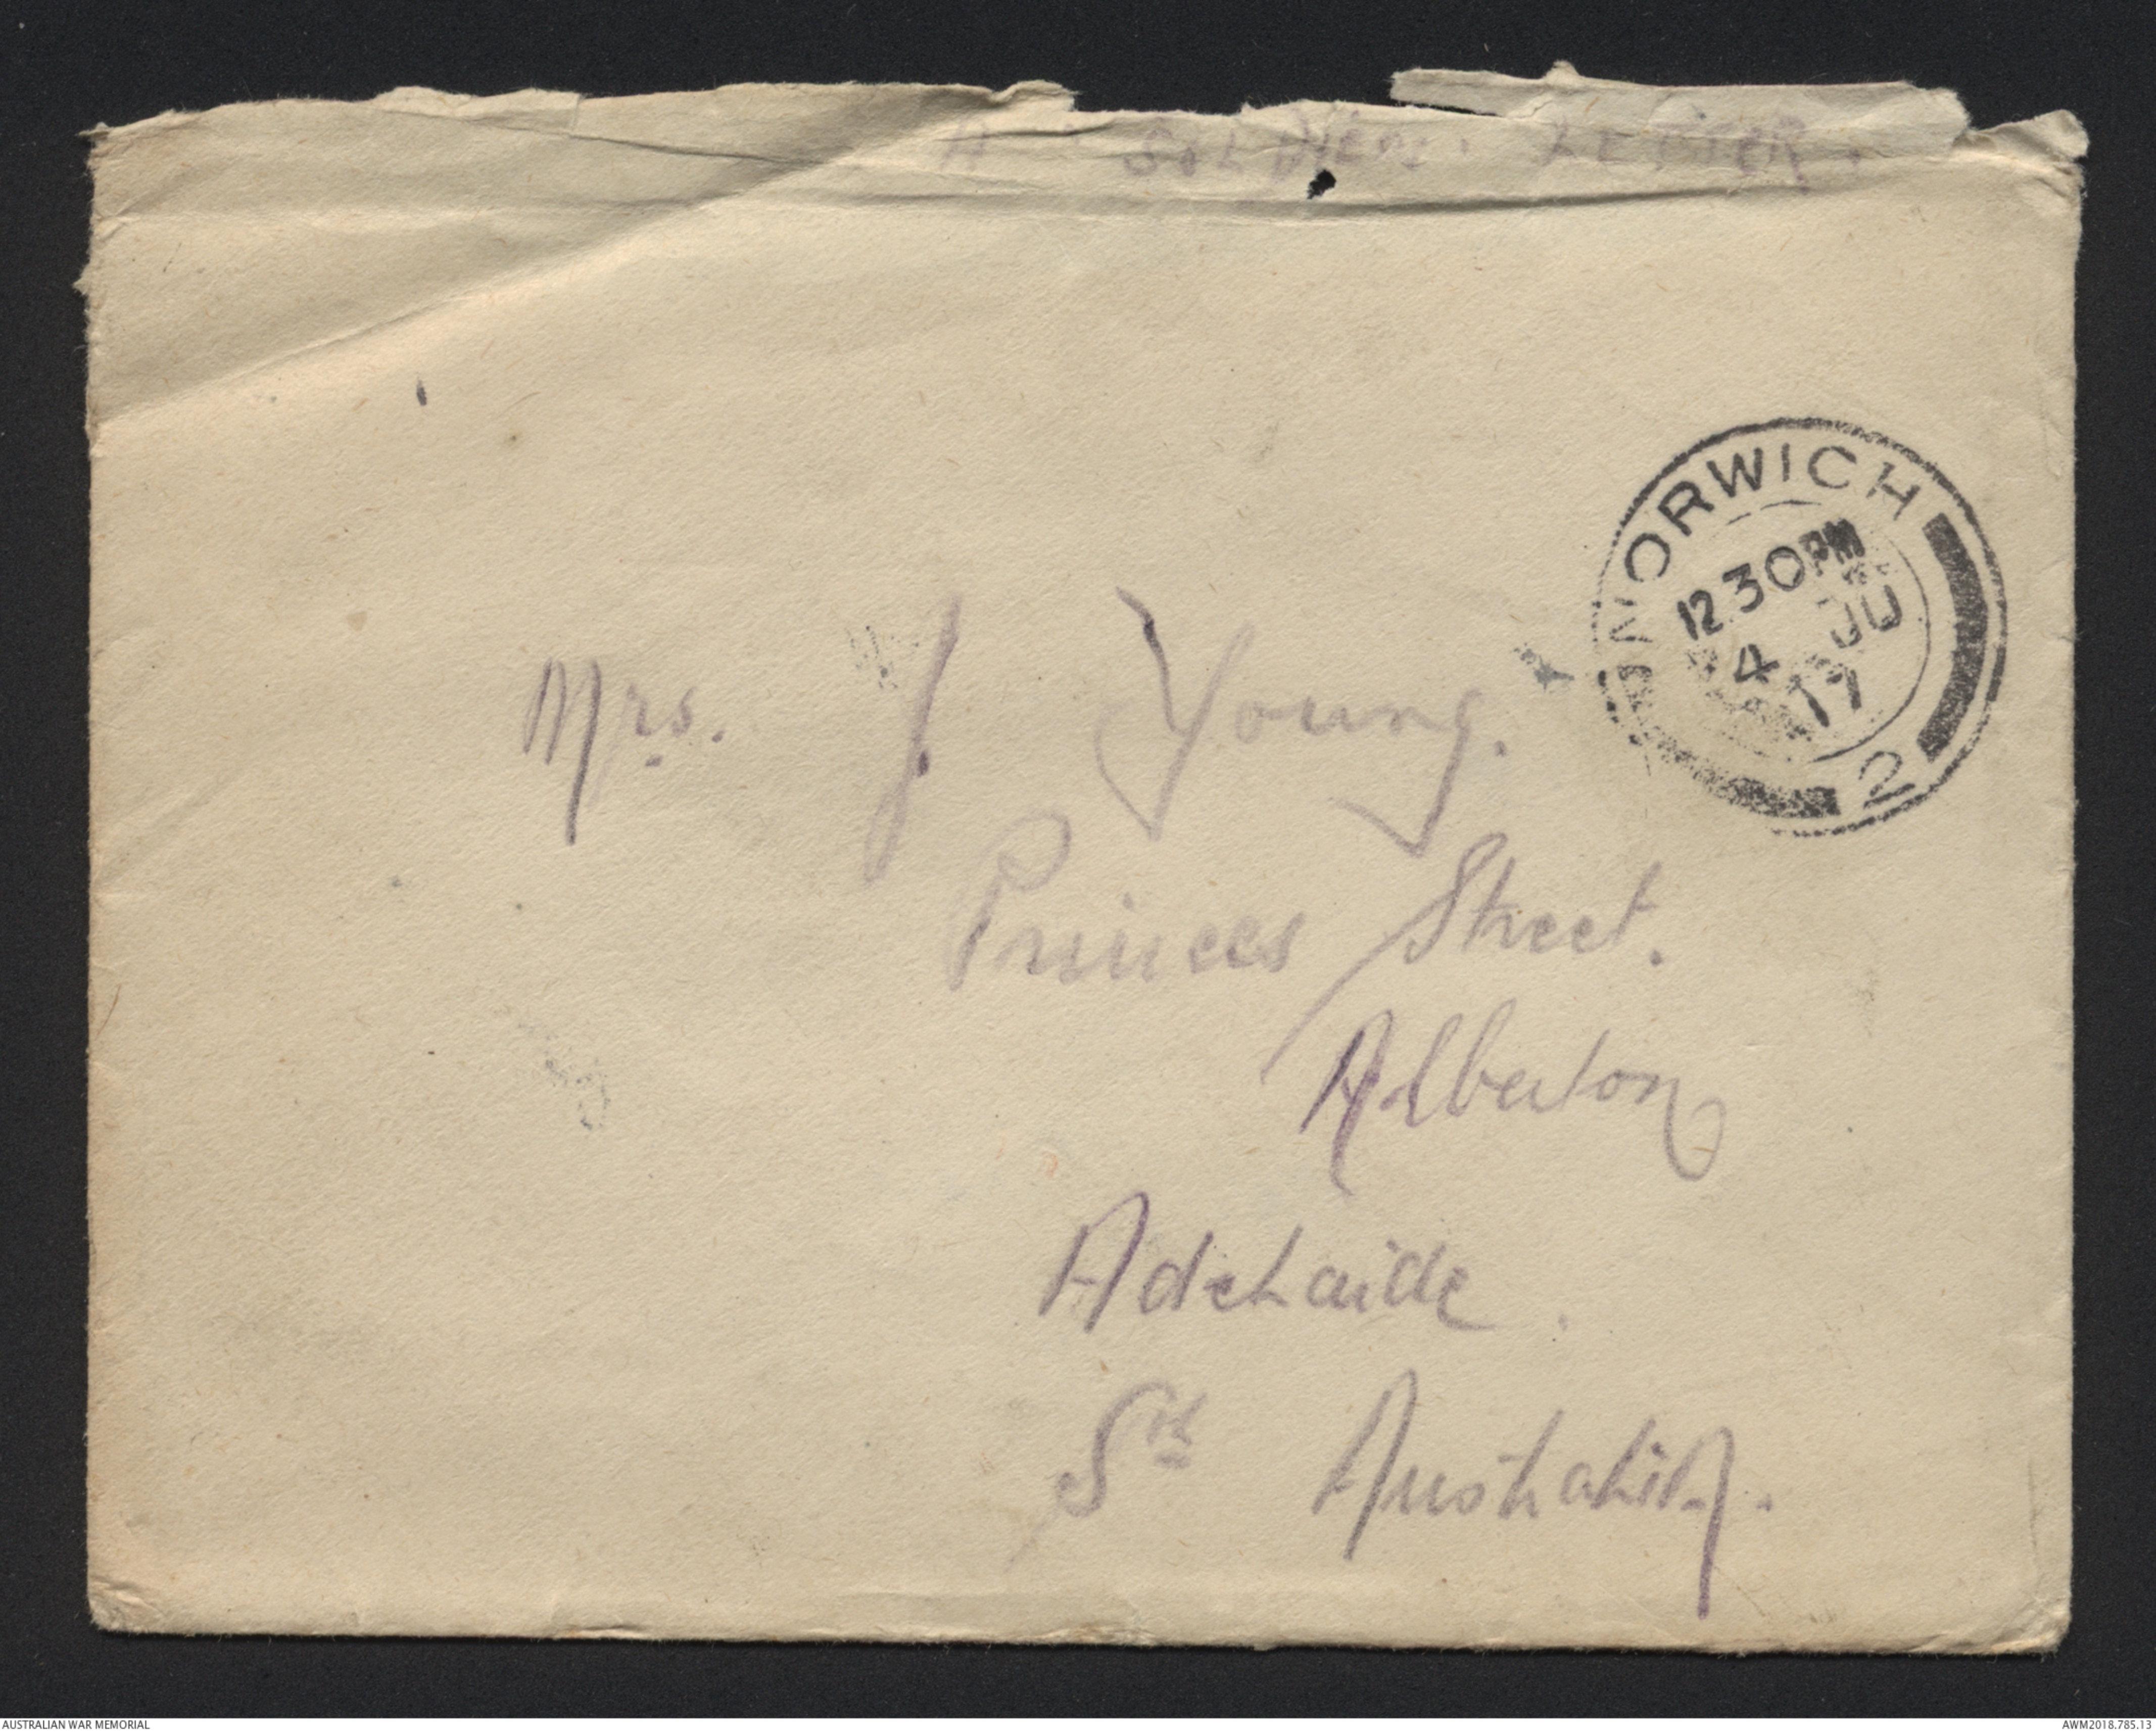 A SOLDIERS. LETTER.
NORWICH
12.30PM
4 JU
17
2
Mrs. J Young.
Princes Street.
Alberton
Adelaide.
Sth Australia.
AUSTRALIAN WAR MEMORIAL
AWM2018.785.13